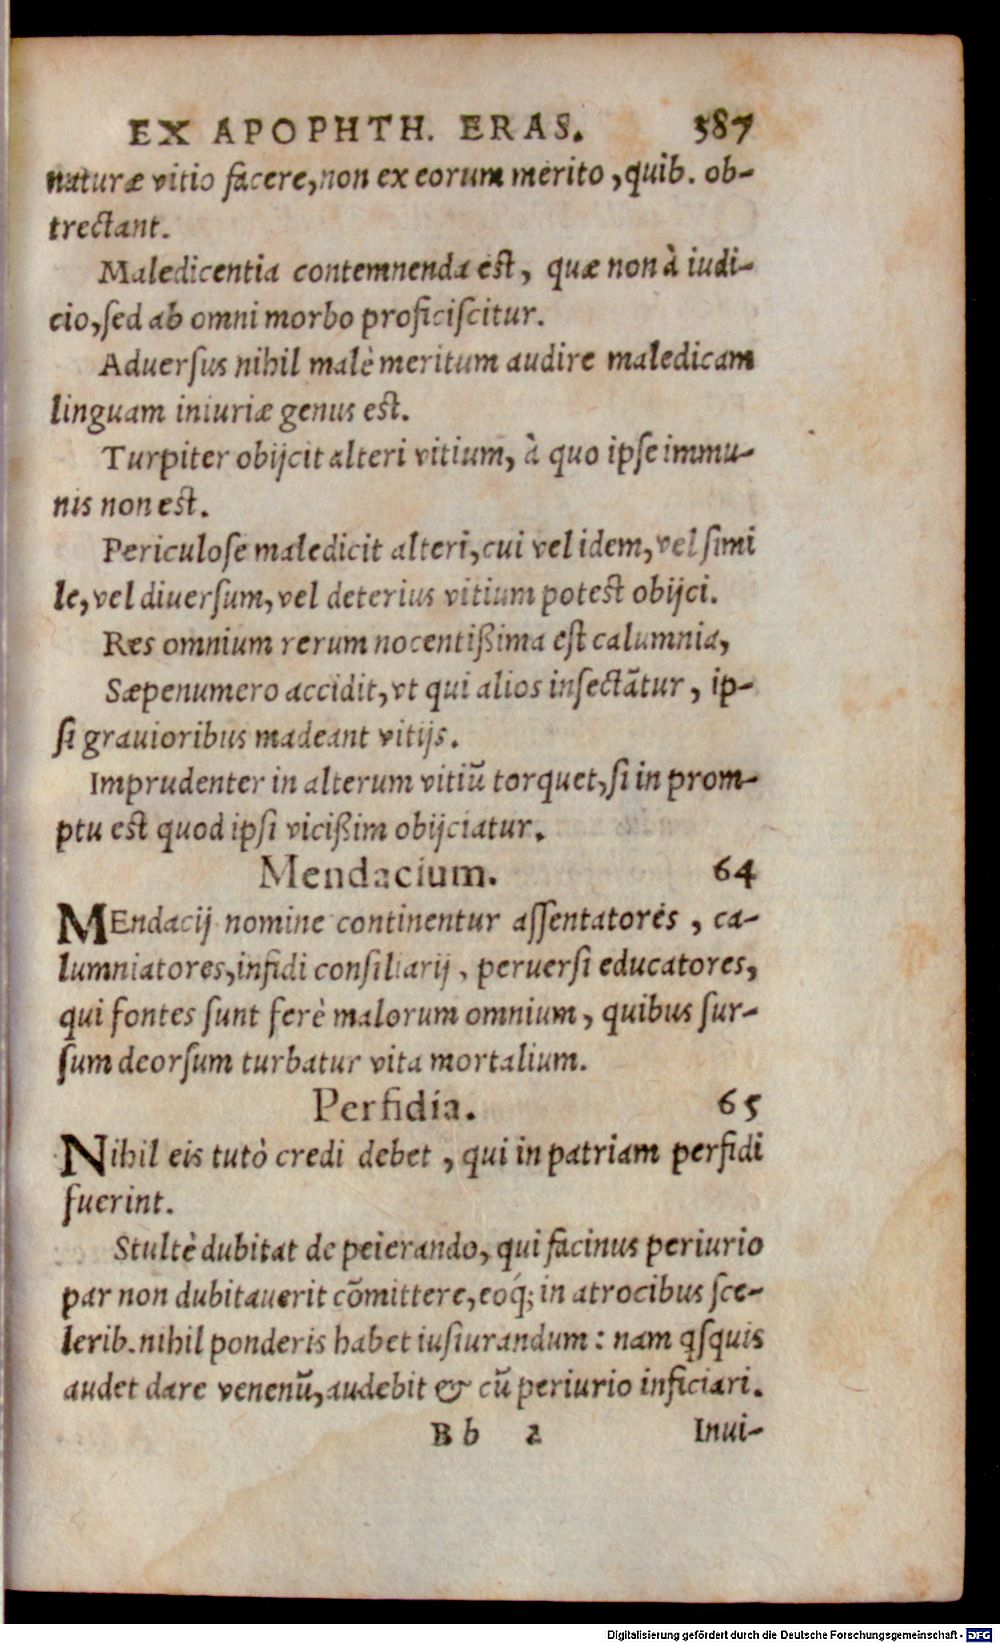 EX APOPHTH. ERAS. 387
naturæ vitio facere, non ex eorum merito, quib. ob-
trectant.
Maledicentia contemnenda est, quæ non à iudi-
cio, sed ab omni morbo proficiscitur.
Aduersus nihil malè meritum audire maledicam
linguam iniuriæ genus est.
Turpiter obijcit alteri vitium, à quo ipse immu-
nis non est.
Periculose maledicit alteri, cui vel idem, vel simi
le, vel diuersum, vel deterius vitium potest obijci.
Res omnium rerum nocentißima est calumnia,
Sæpenumero accidit, vt qui alios insectãtur, ip-
si grauioribus madeant vitijs.
Imprudenter in alterum vitiũ torquet, si in prom-
ptu est quod ipsi vicißim obijciatur.
Mendacium. 64
MEndacij nomine continentur assentatores, ca-
lumniatores, infidi consiliarij, peruersi educatores,
qui fontes sunt ferè malorum omnium, quibus sur-
sum deorsum turbatur vita mortalium.
Perfidia. 65
Nihil eis tutò credi debet, qui in patriam perfidi
fuerint.
Stultè dubitat de peierando, qui facinus periurio
par non dubitauerit cõmittere, eoq́; in atrocibus sce-
lerib. nihil ponderis habet iusiurandum: nam qsquis
audet dare venenũ, audebit & cũ periurio inficiari.
Bb 2 Inui-
Digitalisierung gefördert durch die Deutsche Forschungsgemeinschaft - DFG